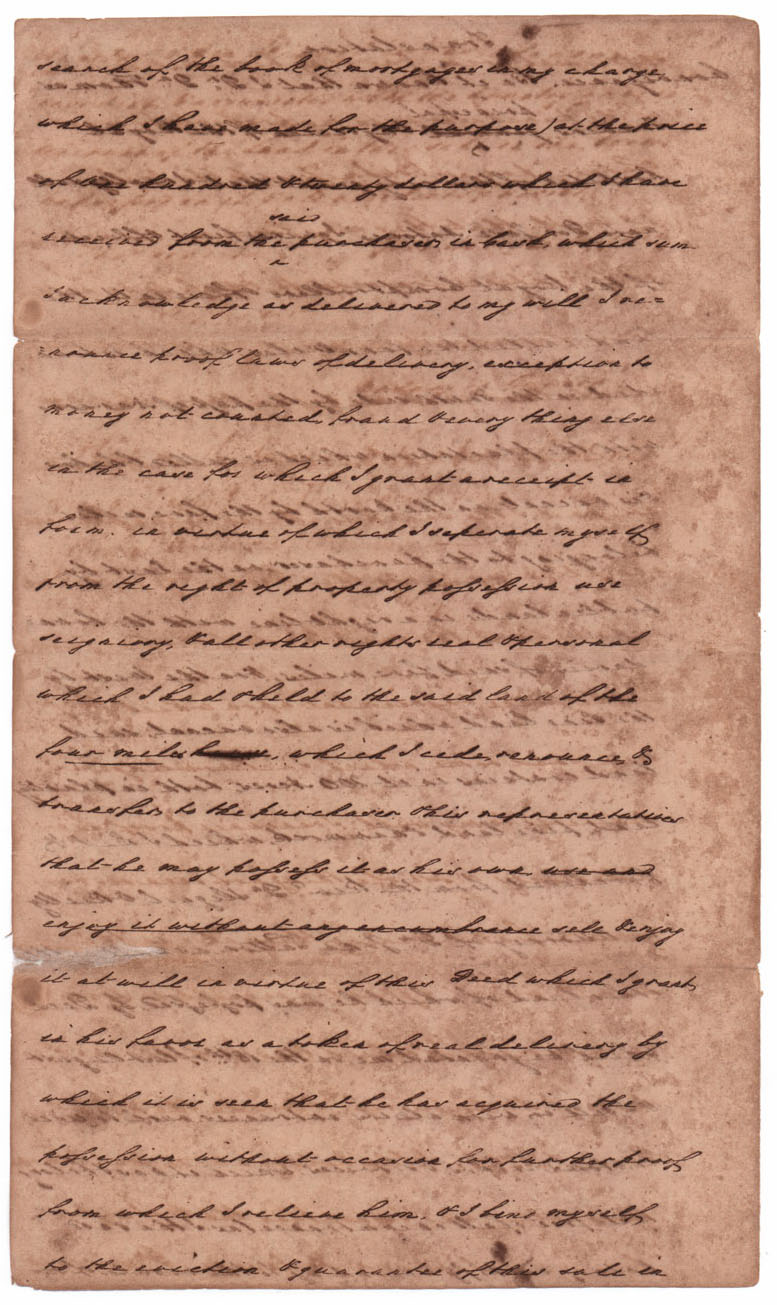 search of the book of mortgages in my charge
which I have made for the purpose) at the price
of one hundred & twenty dollars which I have
said
received from the purchaser, in Cash, which sum
I acknowledge as delivered to my will I re=
=nounce proof laws of delivery, exception to
money not counted, fraud & every thing else
in the case for which I grant a receipt in
form. in virtue of which I seperate myself
from the right of property possession use
seigniory, & all other rights real & personal
which I had & held to the said land of the
four miles, which I cede, renounce, &
transfer, to the purchaser & his representatives
that he may possess it as his own use and
enjoy it without any encumbrance sell & enjoy
it at will in virtue of this Deed which I grant
in his favor as a token of real delivery by
which it is seen that he has acquired the
possession without occasion for further proof
from which I relieve him, & I bind myself
to the eviction & guarantee of this sale in